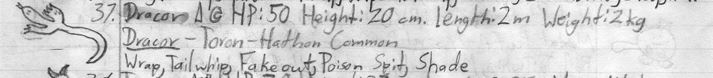 37. Dracor Δ G HP: 50 Height: 20 cm. length: 2m Weight: 2kg
Dracor - Toron - Hathon Common
Wrap, Tail whip, Fake out, Poison Spit, Shade